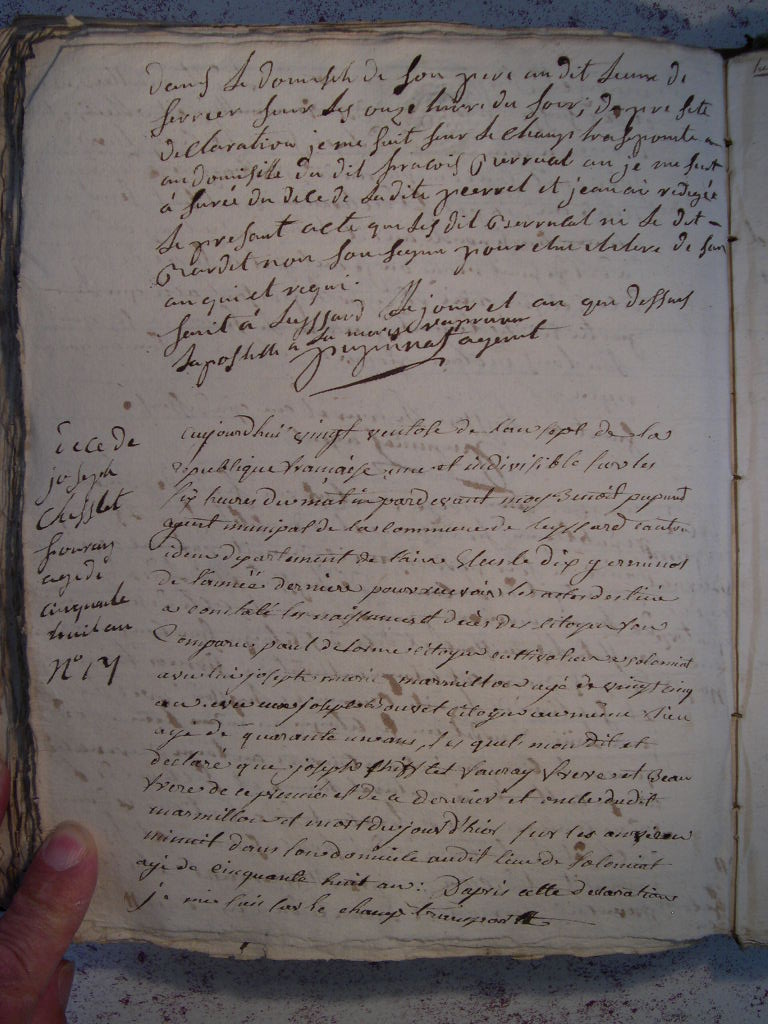 dans le domisile de son pere au dit lieux de
serrier sur les onze heure du soir, dapre sete
declaration je me suit sur le champ trasporté au
au domisile du dit fracois Perruat au je me suit
à suree du dece de ladite peerrel et jean ai redigée
le presant acte que les dit Perrualt ni le dit
non pour etre de
au qui et requi.
fait à Leyssard le jour et an que dessus
lapostille a la marge
agent
dece de
joseph
Chifflet
fouray
age de
cinquante
huit an
N° 17
aujourdhui vingt ventose de lan sept de la
republique française une et indivisible sur les
six heures du matin pardevant moy Benoit
agent municipal de la commune de Leyssard canton
idem departement de lain Eleu le dix germinal
de lannée derniere pour recevoir les actes destiné
a constaté les naissances et deces des citoyen son
Comparu paul delorme citoyen cultivateur a solomiat
avec lui joseph marie marmillon agé de vingt cinq
an joseph citoyen au meme lieu
agé de quarante un ans, les quel mon dit et
declaré que joseph chifflet fouray frere et beau
frere de ce premier et de a dernier et oncle dudit
marmillon et mort du jourd'hier sur les
minuit dans son domicile audit lieu de solomiat
agé de cinquante huit an: Dapris cette declaration
je me suis sur le champ transporté